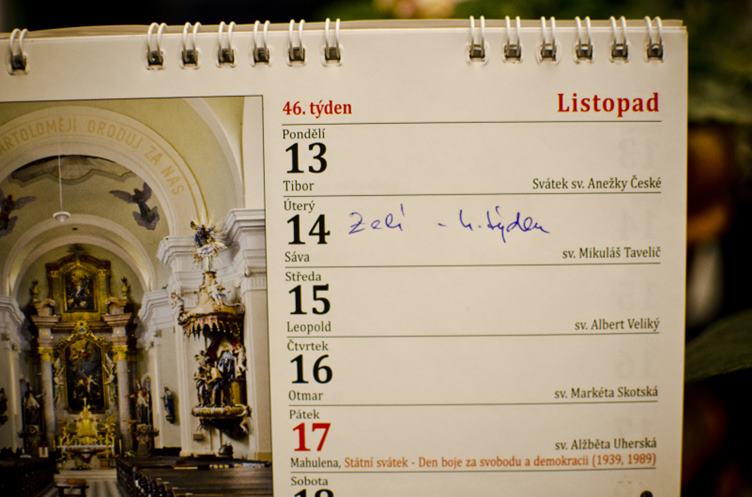 BARTOLOMĚJI ORODUJ ZA NÁS
46. týden Listopad
Pondělí
13
Tibor Svátek sv. Anežky České
Úterý
14 Zelí - 4. týden
Sáva sv. Mikuláš Tavelič
Středa
15
Leopold sv. Albert Veliký
Čtvrtek
16
Otmar sv. Markéta Skotská
Pátek
17 sv. Alžběta Uherská
Mahulena, Státní svátek - Den boje za svobodu a demokracii (1939, 1989)
Sobota
18